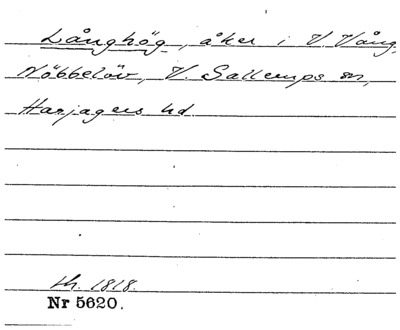 Långhög, åker i V. Vång,
Nöbbelöv, V. Sallerups sn,
Harjagers hd
th. 1818.
Nr 5620.